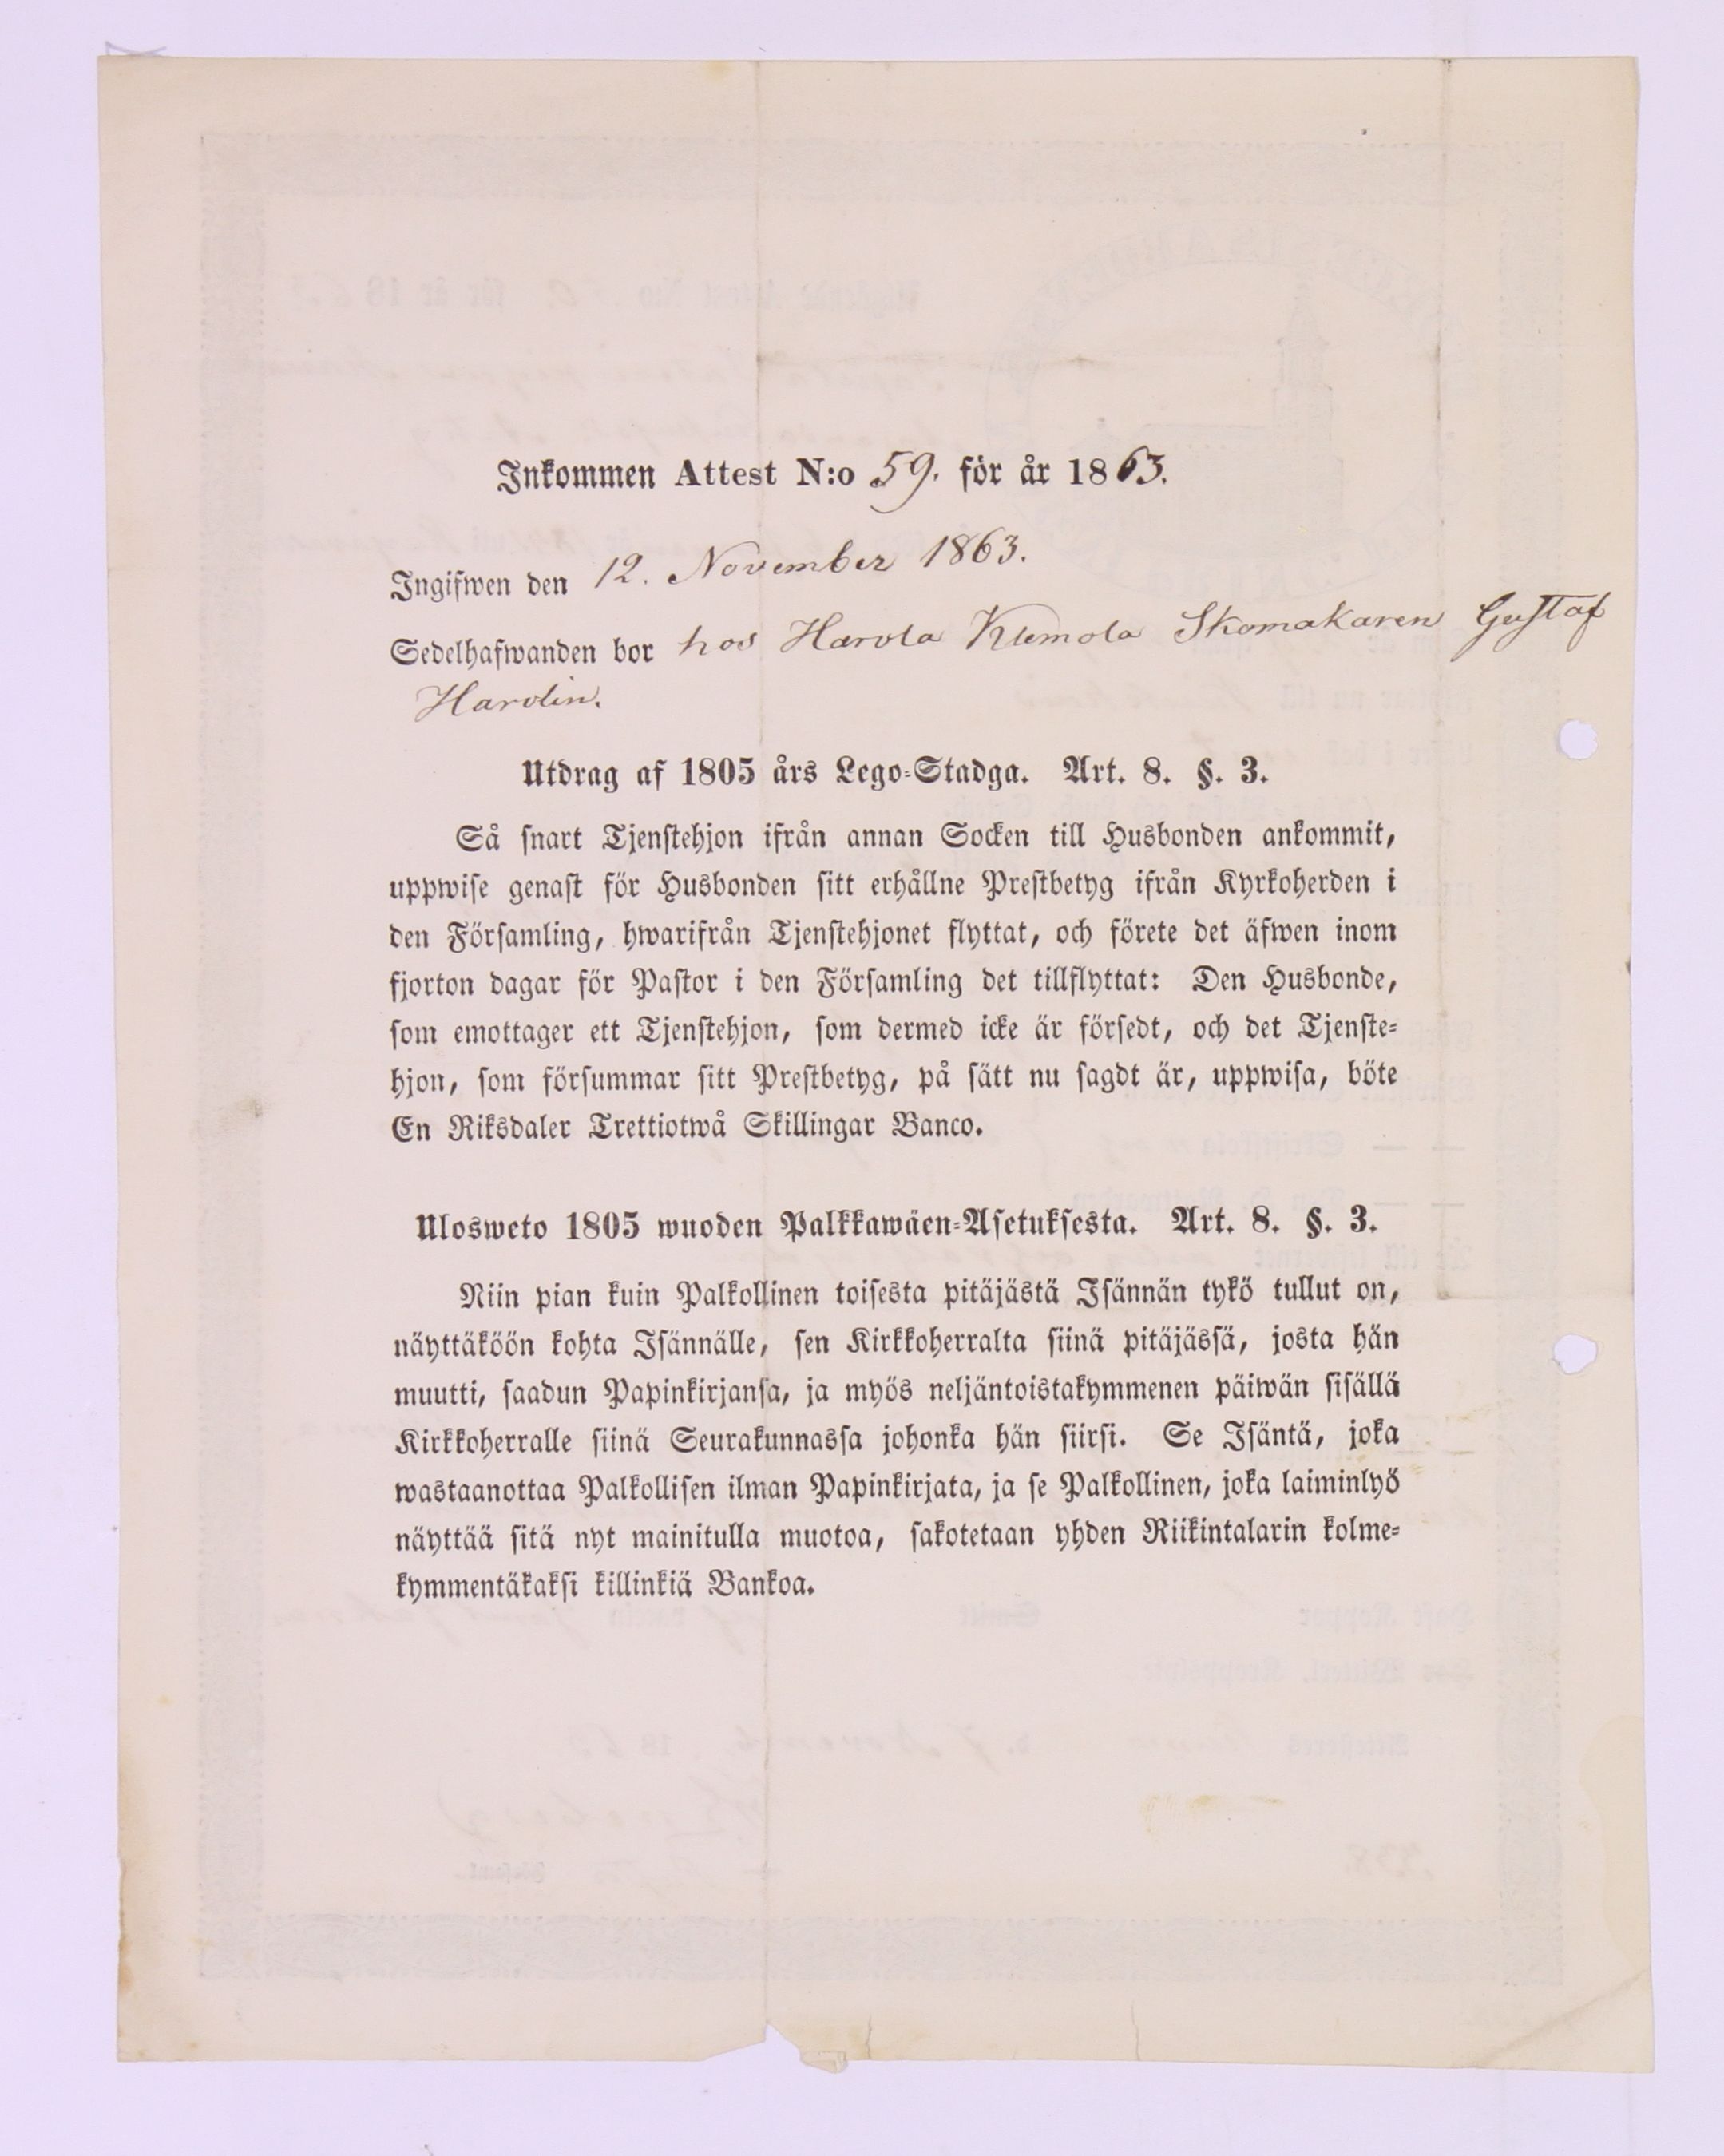 Inkommen Attest N:o 59. för år 1863.
Ingifwen den 12. November 1863.
Sedelhafwanden bor hos Harola Klemola Skomakaren Gustaf
Harolin.
Utdrag af 1805 års Lego-Stadga. Art. 8. §. 3.
Så snart Tjenstehjon ifrån annan Socken till Husbonden ankommit,
uppwise genast för Husbonden sitt erhållne Prestbetyg ifrån Kyrkoherden i
den Församling, hwarifrån Tjenstehjonet flyttat, och förete det äfwen inom
fjorton dagar för Pastor i den Församling det tillflyttat: Den Husbonde,
som emottager ett Tjenstehjon, som dermed icke är försedt, och det Tjenste-
hjon, som försummar sitt Prestbetyg, på sätt nu sagdt är, uppwisa, böte
En Riksdaler Trettiotwå Skillingar Banco.
Ulosweto 1805 wuoden Palkkawäen-Asetuksesta. Art. 8. §. 3.
Niin pian kuin Palkollinen toisesta pitäjästä Isännän tykö tullut on,
näyttäköön kohta Isännälle, sen Kirkkoherralta siinä pitäjässä, josta hän
muutti, saadun Papinkirjansa, ja myös neljäntoistakymmenen päiwän sisällä
Kirkkoherralle siinä Seurakunnassa johonka hän siirsi. Se Isäntä, joka
wastaanottaa Palkollisen ilman Papinkirjata, ja se Palkollinen, joka laiminlyö
näyttää sitä nyt mainitulla muotoa, sakotetaan yhden Riikintalarin kolme-
kymmentäkaksi killinkiä Bankoa.